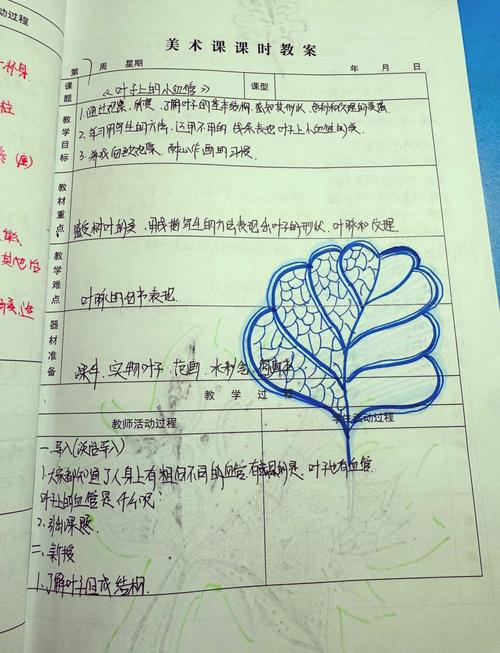 动过程
美术课课时教案
第 周 星期 年 月 日
课题 《叶子上的小血管》 课型
教学目标
1.通过观察、欣赏、了解叶子的基本结构,感知其形状、色彩和纹理的美感。
2.学习用写生的方法,运用不同的线条表现叶子上小血管的美。
3.养成细致观察、耐心作画的习惯。
教材重点
感受树叶的美,用线描写生的方法表现出叶子的形状、叶脉和纹理。
教学难点
叶脉的细节表现。
器材准备
课件、实物叶子、范画、水彩笔、图画本
教学过程
教师活动过程 学生活动过程
一.导入(谈话导入)
1.大家都知道了人身上有粗细不同的血管,有趣的是,叶子也有血管
叶子上的血管是什么呢?
2.引出课题。
二、新授
1.了解叶子组成结构.